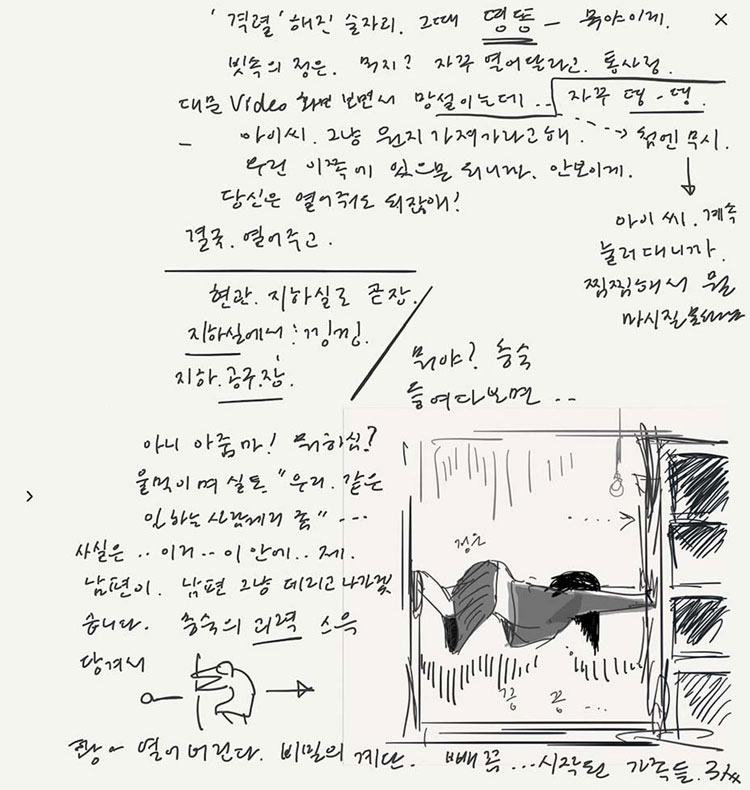 '격렬' 해진 술자리. 그때 띵똥 _ 뭐야이게.
빗속의 정은. 뭐지? 자꾸 열어달라고. 통사정.
대문 Video 화면 보면서 망설이는데.. 자꾸 띵-띵.
_ 아이씨. 그냥 뭔지 가져가라고해. --> 첨엔 무시.
우린 이쪽에 있으믄 되니까. 안보이게.
당신은 열어줘도 되잖애!
결국. 열어주고.
아이 씨. 계속
눌러대니까.
찜찜해서 뭘
마시질
현관. 지하실로 곧장.
지하실에서 : 낑낑.
지하.공구.장.
뭐야? 충숙
들여다보면 ..
아니 아줌마! 뭐하심?
울먹이며 실토 "우리. 같은
일하는 사람께리 좀" ---
사실은 .. 이거.. 이 안에.. 제.
남편이. 남편 그냥 데리고 나가겠
습니다. 충숙의 괴력 스윽
당겨서
정은
끙 끙 ...
쾅~ 열어버린다. 비밀의 계단. 빼꼼 ...시작된 가족들.